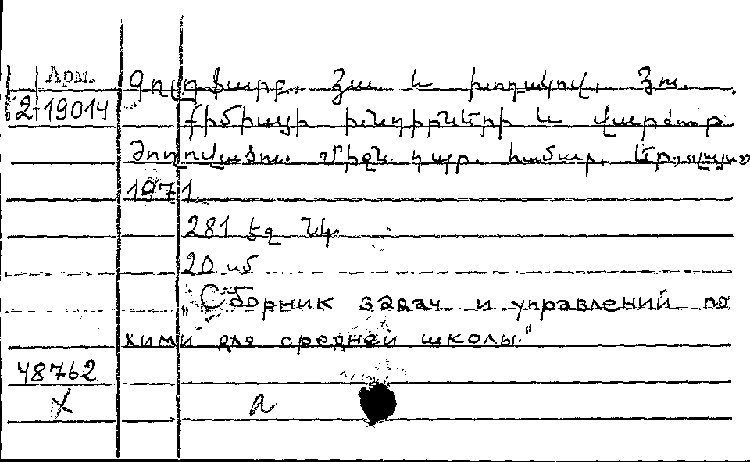 Арм.
2-19014
Գոլդֆարբ, Յա. և Խոդակով, Յու.
Քիմիայի խնդիրների և վարժութ.
Ժողովածու. Միջն. դպր. համար.
1971
281 էջ նկ.
20 սմ
"Сборник задач и управлений по
хими для средней школы."
48762
X а